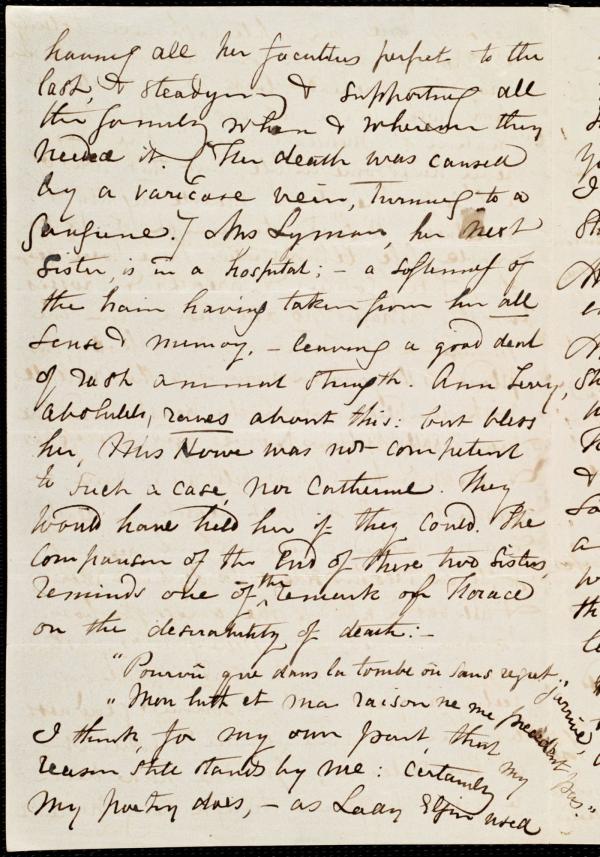 having all her faculties perfect to the
last, & steadying & supporting all
the family when & wherever they
needed it. (Her death was caused
by a varicose vein, turning to a
gangrene.) Mrs Lyman, her next
sister, is in a hospital; – a softening of
the brain having taken from her all
sense & memory, – leaving a good deal
of rash animal strength. Ann Terry,
absolutely, raves about this: but bless
her, Mrs Howe was not competent
to such a case, nor Catherine. They
would have held her if they could. The
comparison of the End of these two sisters,
reminds one of the remark of Horace
on the desirability of death: –
"Pourvu que dans la tombe où sans regret j'arrive,
"Mon luth et ma raison ne me précèdent pas."
I think, for my own part, that my
reason still stands by me: certainly
my poetry does, – as Lady Elgin used